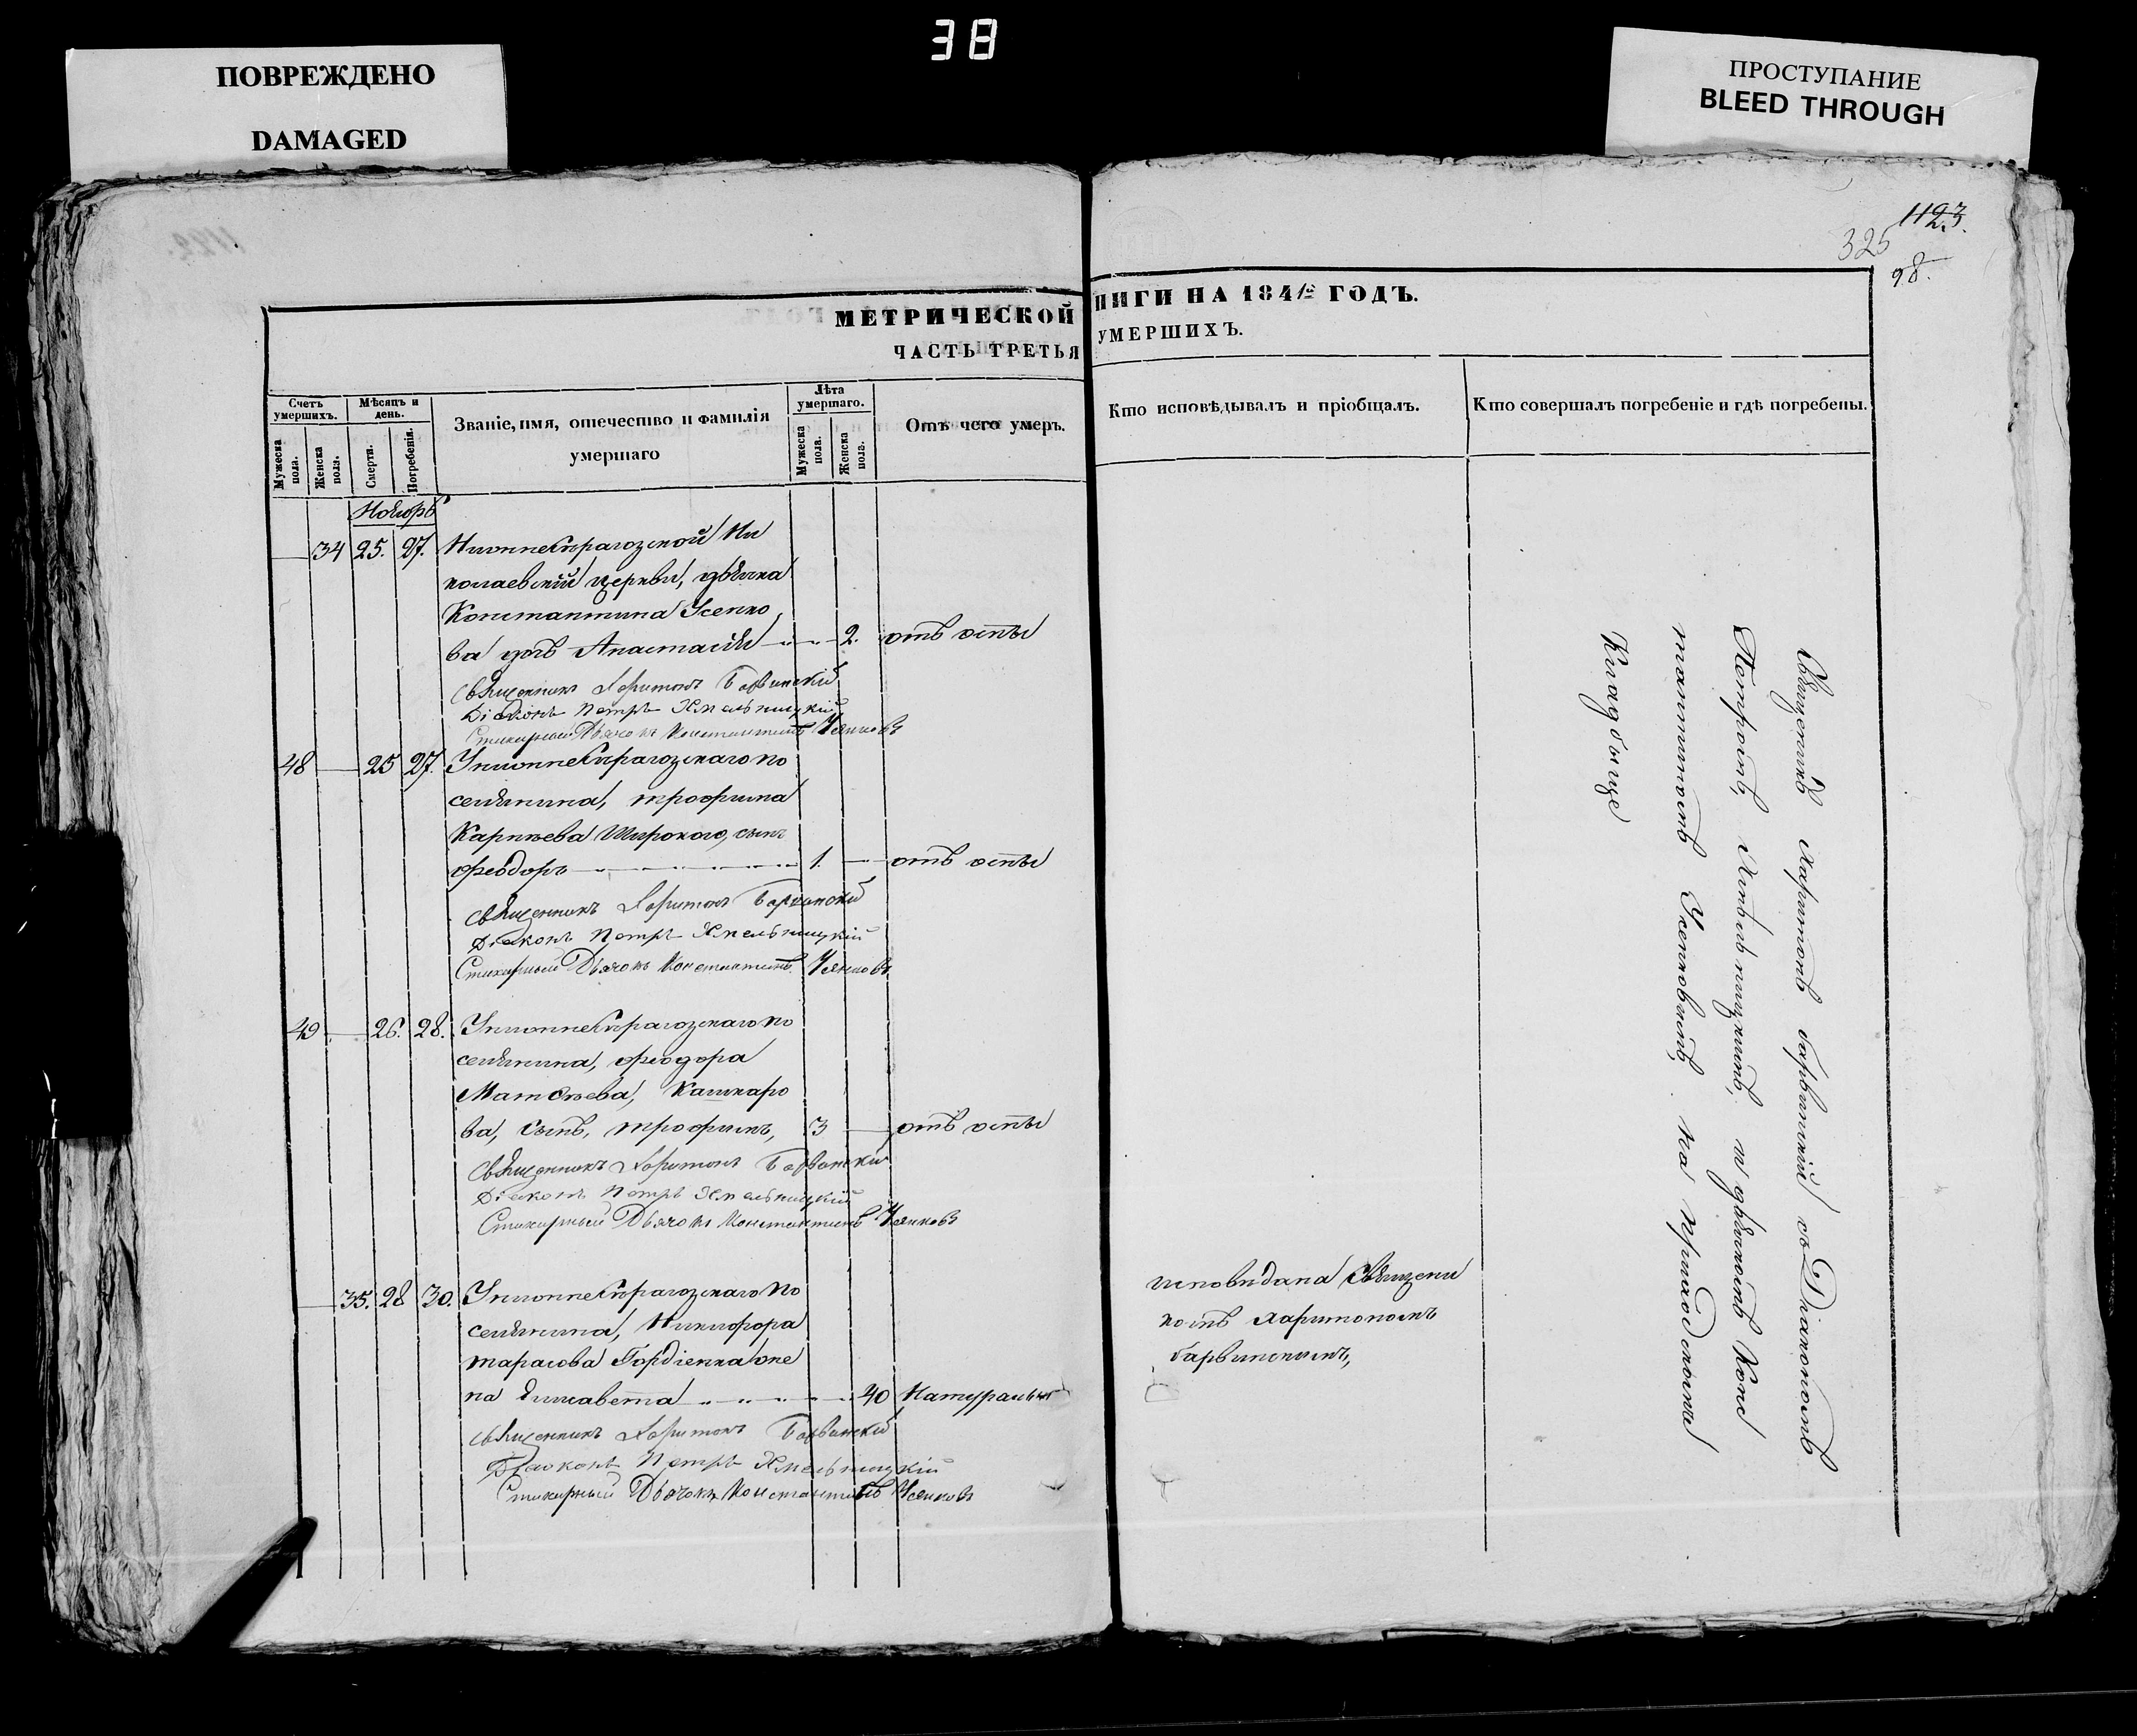 38
ПОВРЕЖДЕНО
DAMAGED
ПРОСТУПАНИЕ
BLEED THROUGH
1123.
325
98.
МЕТРИЧЕСКОЙ
НИГИ НА 1841го ГОДЪ.
ЧАСТЬ ТРЕТЬЯ
УМЕРШИХЪ.
Счетъ умершихъ.
Мужеска пола.
Женска пола.
Мѣсяцъ и день.
Смерти.
Погребенія.
Званіе, имя, отечество и фамилія
умершаго
Лѣта умершаго.
Мужеска пола.
Женска пола.
Отъ чего умеръ.
Кто исповѣдывалъ и пріобщалъ.
Кто совершалъ погребеніе и гдѣ погребены.
Ноябрь
34 25. 27. Нижнесѣрагозской Ни
колаевскій церкви, дьячка
Константина Усенко
ва дочь Анастасія 2. отъ оспы
Священникъ Харитонъ Барвинскій
Діаконъ Петръ Хмельницкій
Стихарный Дьячокъ Константинъ Усенковъ
48 25 27. Унижнесѣрагозскаго по
селянина, трофима
Карпѣева Широкого, сынъ
феодоръ 1. отъ оспы
Священникъ Харитонъ Барвинскій
Діаконъ Петръ Хмельницкій
Стихарный Дьячокъ Константинъ Усенковъ
49 26. 28. Унижнесѣрагозскаго по
селянина, феодора
Матвѣева, Кашкаро
ва, сынъ, трофимъ, 3 отъ оспы
Священникъ Харитонъ Барвинскій
Діаконъ Петръ Хмельницкій
Стихарный Дьячокъ Константинъ Усенковъ
35. 28 30. Унижнесѣрагозскаго по
селянина, Никифора
тарасова Гордіенка жне
на Елисавета 40 Натурально
Священникъ Харитонъ Барвинскій
Діаконъ Петръ Хмельницкій
Стихарный Дьячокъ Константинъ Усенковъ
исповидана Священи
комъ харитономъ
барвинскимъ,
Священникъ харитонъ барвинскій съ Діакономъ
Петромъ, Хмѣльницкимъ, и дьячкомъ Конс
тантиномъ Усенковымъ, на приходскомъ
Кладбище